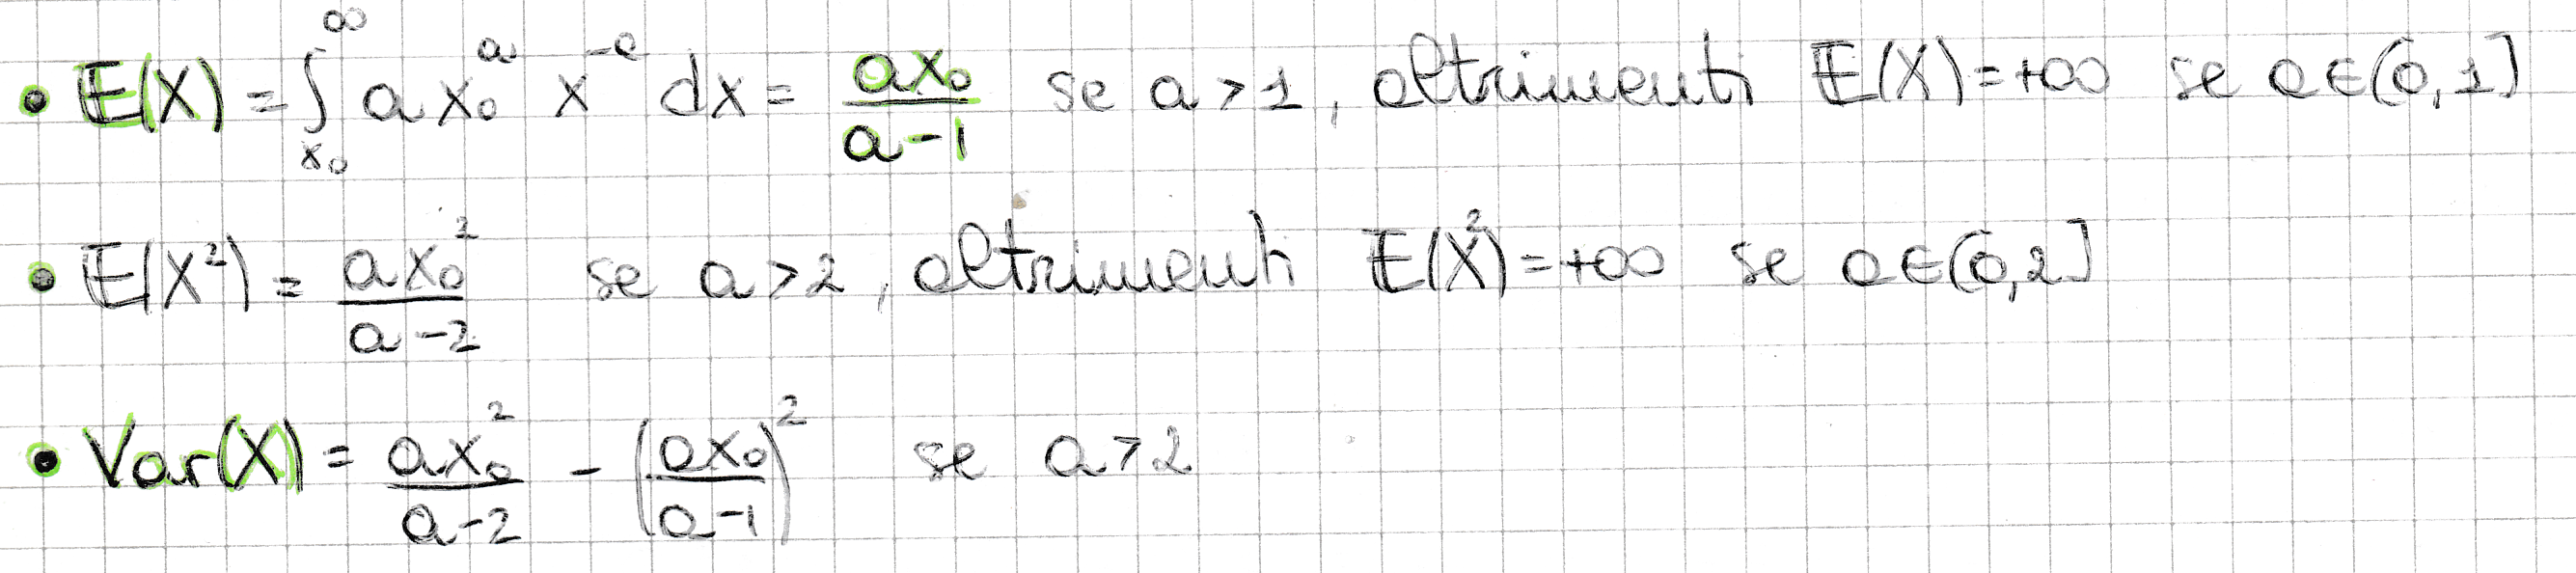 • E(X) = ∫_{x₀}^{∞} a x₀^a x^{-a} dx = \frac{ax₀}{a-1} se a > 1, altrimenti E(X) = +∞ se a ∈ (0, 1]
• E(X²) = \frac{ax₀²}{a-2} se a > 2, altrimenti E(X²) = +∞ se a ∈ (0, 2]
• Var(X) = \frac{ax₀²}{a-2} - (\frac{ax₀}{a-1})² se a > 2